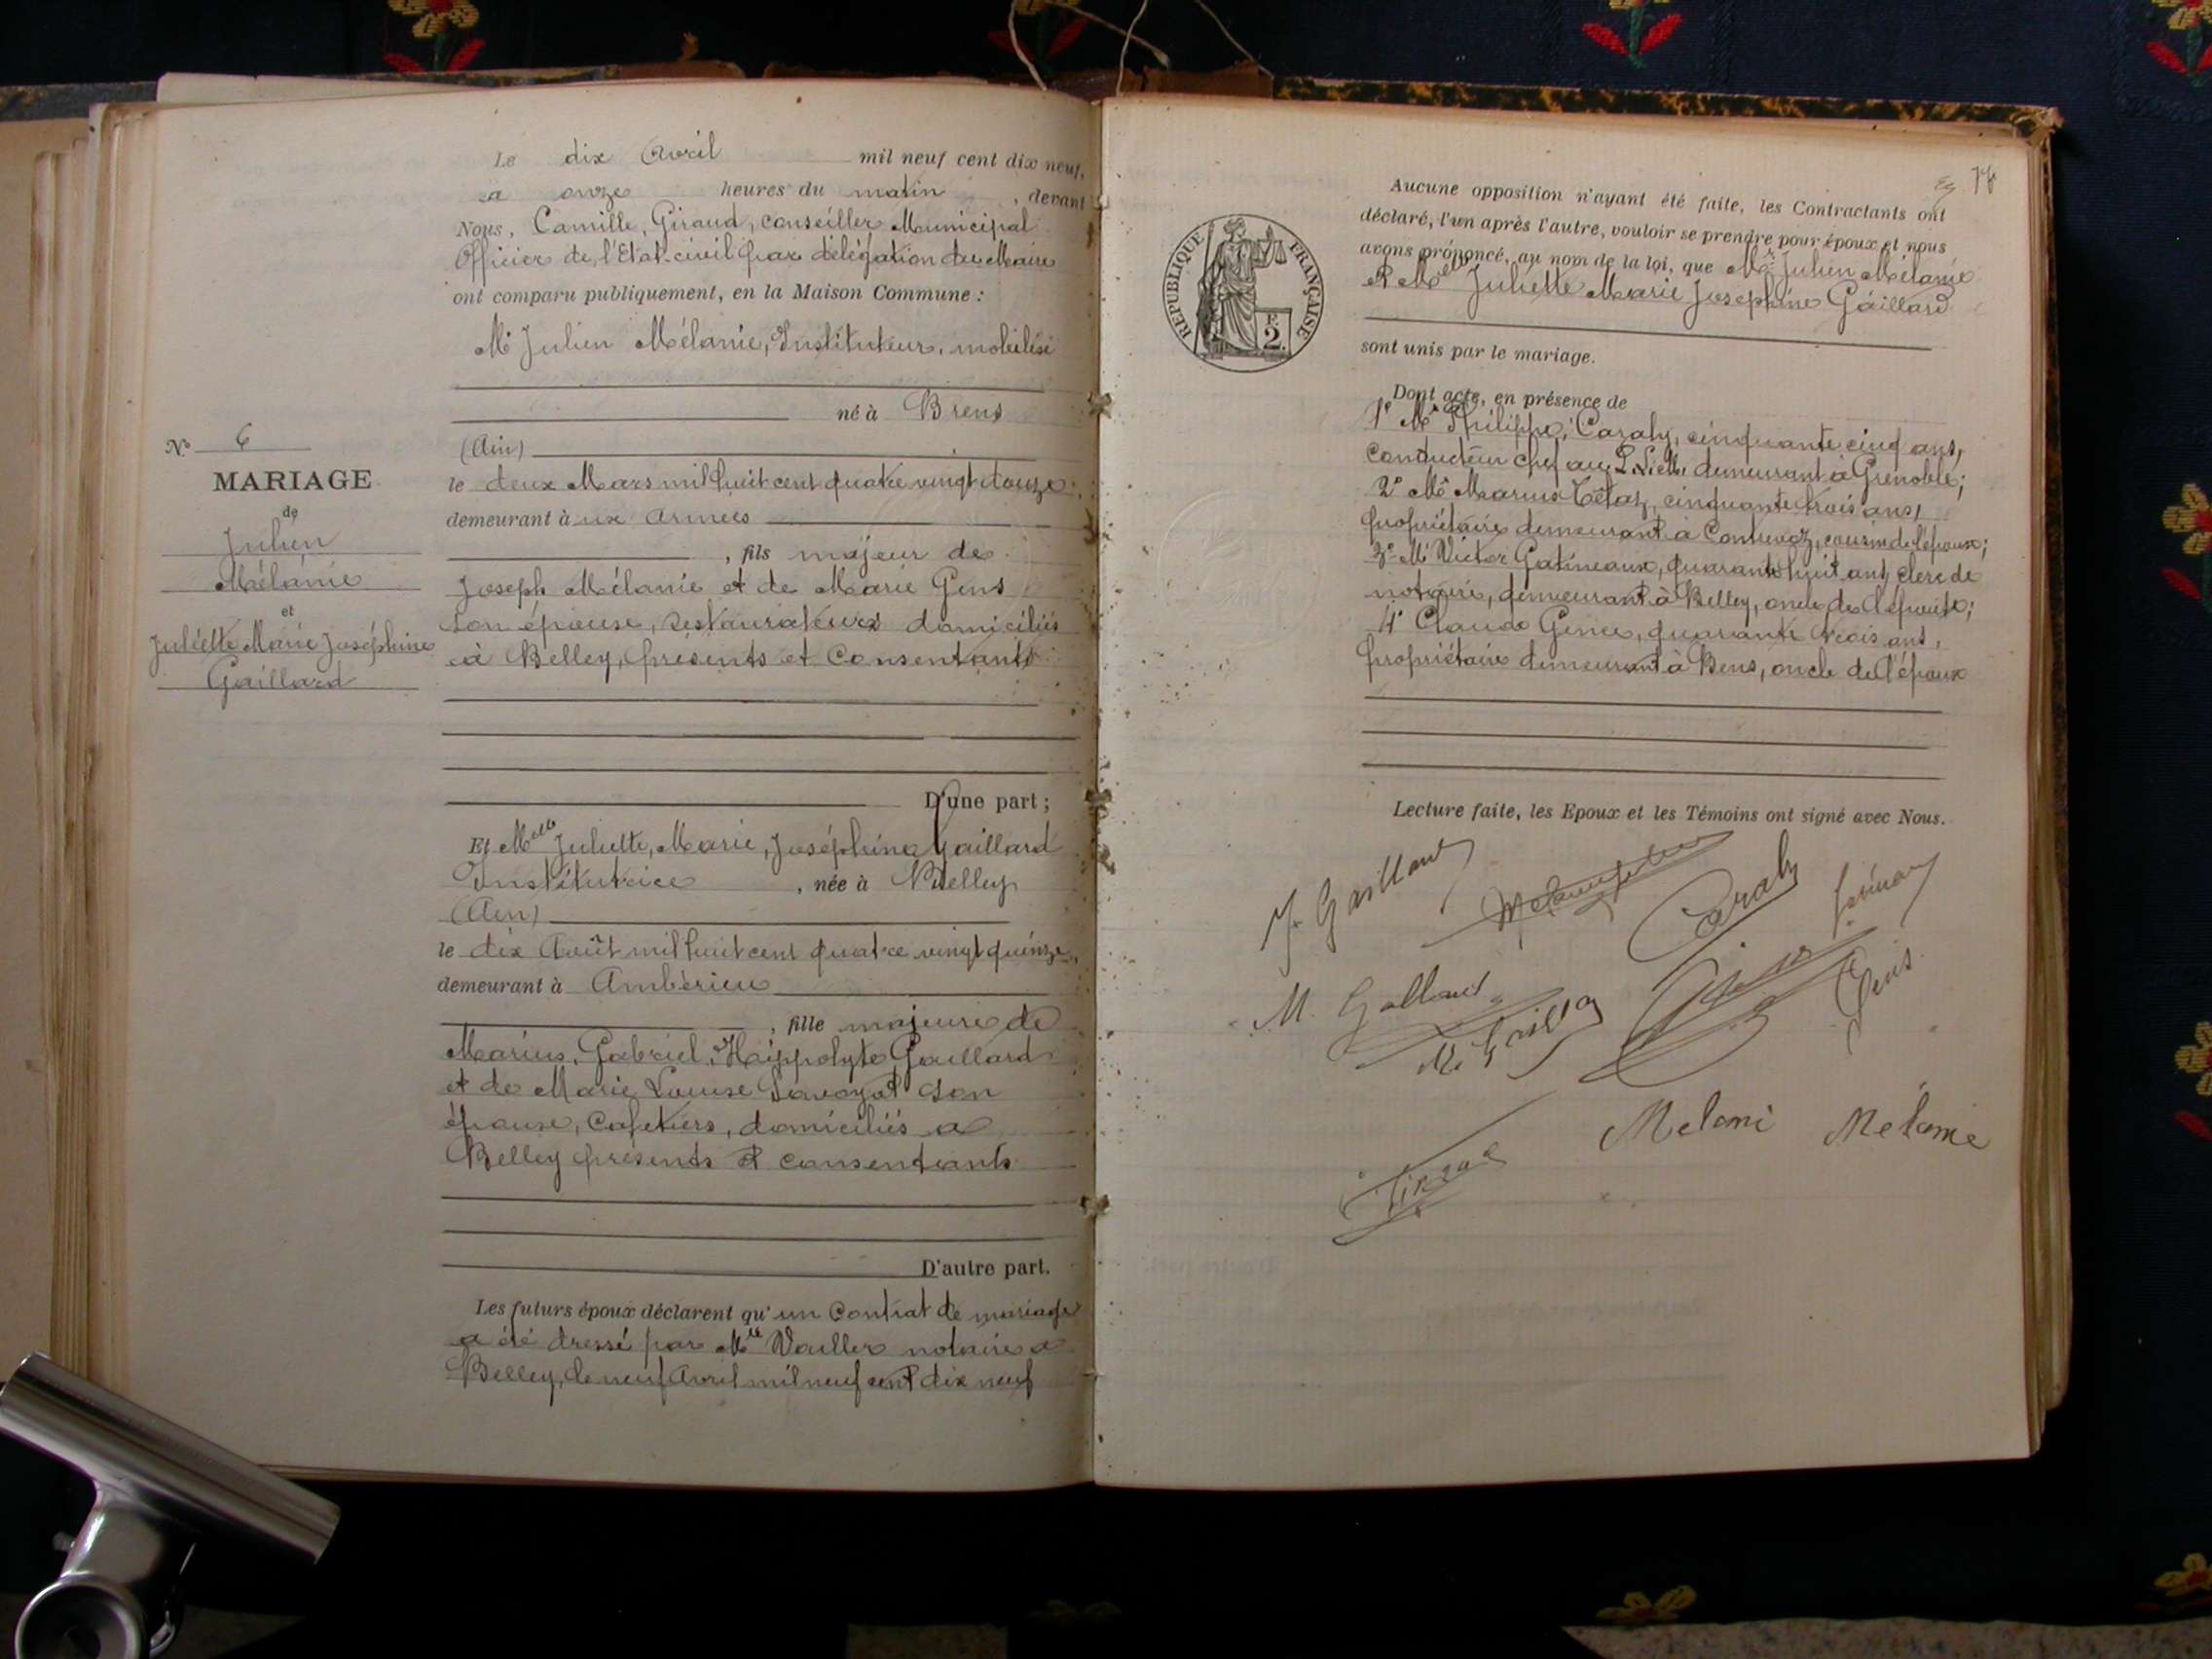 Le dix Avril mil neuf cent dix neuf,
à onze heures du matin, devant
Nous, Camille, Giraud, conseiller Municipal
Officier de l'Etat-civil par délégation du Maire
ont comparu publiquement, en la Maison Commune :
Mr Julien Mélanie, Instituteur, mobilisé
né à Brens
(Ain)
le deux Mars mil huit cent quatre vingt douze,
demeurant à ux Armées
, fils majeur de
Joseph Mélanie et de Marie Gens
son épouse, restaurateurs domiciliés
à Belley, présents et Consentants
D'une part ;
Et Melle Juliette, Marie, Joséphine Gaillard
Institutrice, née à Belley
(Ain)
le dix Août mil huit cent quatre vingt quinze,
demeurant à Ambérieu
, fille majeure de
Marius, Gabriel, Hippolyte Gaillard
et de Marie Louise son
épouse, Cafetiers, domiciliés a
Belley présents et consentants
D'autre part.
Les futurs époux déclarent qu'un Contrat de mariage
a été dressé par Me notaire a
Belley, le neuf Avril mil neuf cent dix neuf
No 6
MARIAGE
de
Julien
Mélanie
et
Juliette Marie Joséphine
Gaillard
RÉPUBLIQUE FRANÇAISE
F.
2.
Aucune opposition n'ayant été faite, les Contractants ont
déclaré, l'un après l'autre, vouloir se prendre pour époux et nous
avons prononcé, au nom de la loi, que Mr Julien Mélanie
et Melle Juliette Marie Josephine Gaillard
sont unis par le mariage.
Dont acte, en présence de
1° Mr Philippe, Caraly, cinquante cinq ans,
Conducteur chef au demeurant à Grenoble ;
2° Mr Marius Tétaz, cinquante trois ans,
propriétaire demeurant à Contrevoz, cousin de l'époux ;
3° Mr Victor Gatineaux, quarante huit ans, clerc de
notaire, demeurant à Belley, oncle de l'épouse ;
4° Claude quarante trois ans,
propriétaire demeurant à Bens, oncle de l'époux
Lecture faite, les Epoux et les Témoins ont signé avec Nous.
J. Gaillard
Caraly
M. Galland
Gens
Melani Mélanie